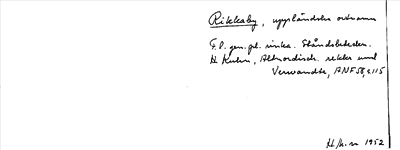 Rikkaby, uppländska ortnamn
F.l. gen. pl. rinka. Ståndsbeteckn.
H. Kuhn, Altnordisch. rekkr und
Verwandte, ANF 58, s 115
1952